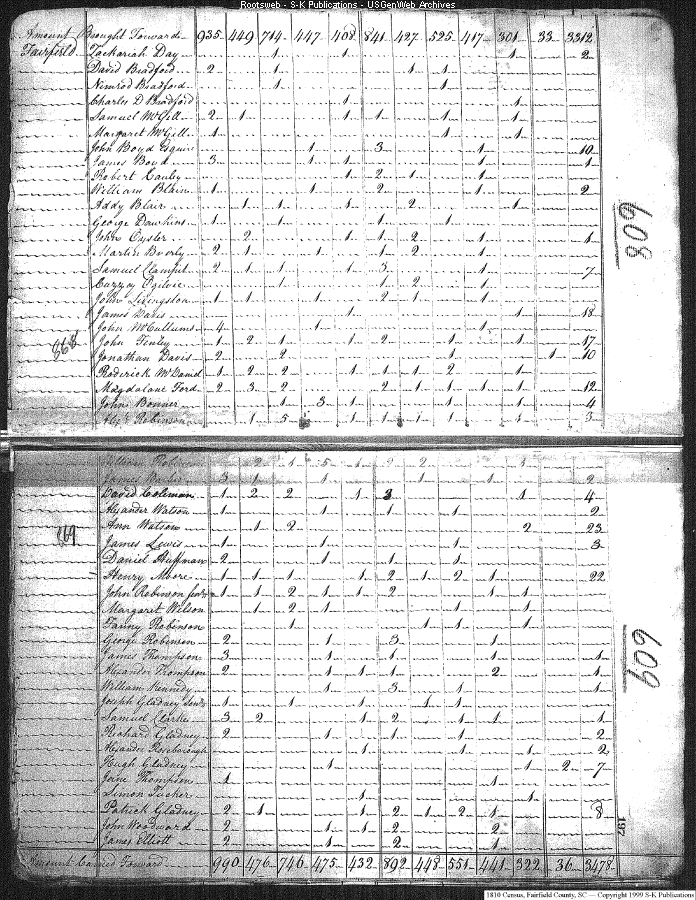 Rootsweb - S-K Publications - USGenWeb Archives
Amount Brought Forward 935 449 714 447 408 841 427 525 417 301 33 3312
Fairfield Zackariah Day 1 1 1 2
David Bradford 2 1 1 1
Nimrod Bradford 1 1
Charles D Bradford 1 1
Samuel McGill 2 1 1 1 1 1
Margaret McGill 1 1 1
John Boyd Esquire 1 3 1 10
James Boyd 3 1 1 1 1
Robert 1 2 1 1
William Blain 1 1 2 1 2
Addy Blair 1 1 1 2 1
George Dawkins 1 1 1 1
John Oyster 2 1 1 2 1 1
Martin Beverly 2 1 1 1 2 1
Samuel 2 1 1 1 3 1 7
Ogilvie 1 1 2 1
John Livingston 1 1 1 2 1 1
James Davis 1 1 18
John McCullums 4 1 1
John 1 2 1 1 2 1 1 17
Jonathan Davis 2 2 1 1 10
Roderick McDavid 1 2 2 1 1 1 2 1
Magdalane Ford 2 3 2 2 1 1 1 1 12
John Bonner 1 3 1 1 1 4
Robinson 1 5 1 1 1 1 1 1 3
608
William 2 1 5 1 2 2 1
James 3 1 1 1 1 2
David Coleman 1 2 2 1 3 1 4
Alexander Watson 1 1 1 1 2
Ann Watson 1 2 2 23
James Lewis 1 1 1 3
Daniel Huffman 2 1 1 1
Henry Moore 1 1 1 1 2 1 2 1 22
John Robinson 1 1 2 1 1 2 1 1
Margaret Wilson 1 2 1 1 1
Fanny Robinson 1 1 1 1
George Robinson 2 1 3 1
James Thompson 3 1 1 1 1
Alexander Thompson 2 1 1 1 2 1
William Kennedy 1 3 1 1
Joseph Gladney 1 1 1 1 1
Samuel Clarke 3 2 1 2 1 1 1
Richard Gladney 2 1 1 1 2
Alexander Roseborough 1 1 1 2
Hugh Gladney 1 1 2 7
Jane Thompson 1 1
Simon Tucker 1 1
Patrick Gladney 2 1 1 2 1 2 1 8
John Woodward 2 1 1 2 2
James Elliott 2 1 2 1
Amount Carried Forward 990 476 746 475 432 892 448 551 441 322 36 3478
609
197
1810 Census, Fairfield County, SC — Copyright 1999 S-K Publications